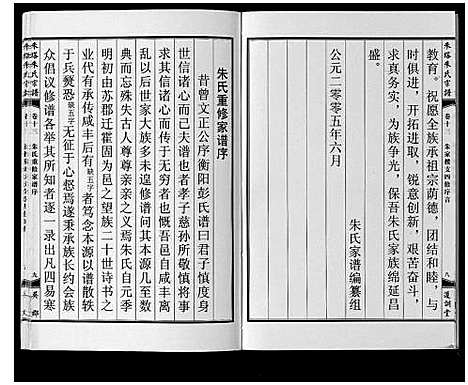 教育。祝愿全族承祖宗荫德，团结和睦，与
时俱进，开拓进取，锐意创新，艰苦奋斗，
求真务实，为族争光，保吾朱氏家族绵延昌
盛。
朱氏家谱编纂组
公元二零零五年六月
朱氏重修家谱序
昔曾文正公序衡阳彭氏谱曰君子慎度身
世信诸心而已夫谱也者孝子慈孙所敬慎将事
求其信诸心而传于无穷也慨昔遥自咸丰离
乱以后世家大族多未遑修谱问其本源几至数
典而忘殊失古人尊尊亲亲之义焉朱氏自元季
明初由苏郡迁霍固为邑之望族二十世诗书之
业代有承传咸丰后有缺五字者笃念本源以谱散轶
于兵燹惄缺五字无征于心惄焉遂秉承族长约会族
众倡议修谱各举其所知者逐一录出凡四易寒
朱氏重修家谱序
卷十三
朱塔朱氏宗谱
九